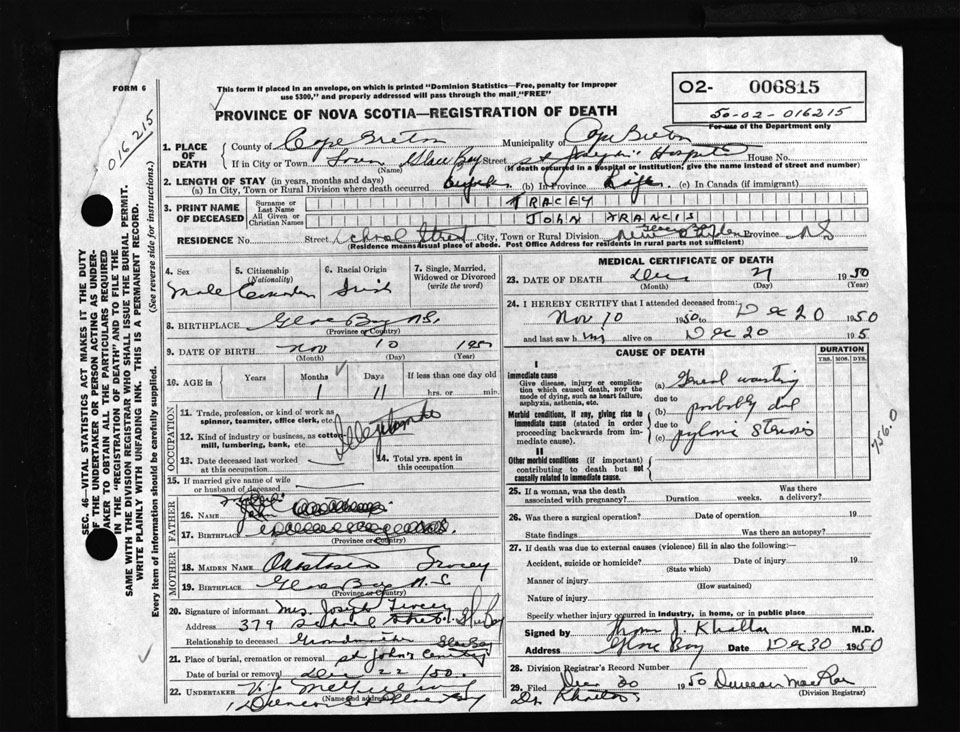 FORM 6
This form if placed in an envelope, on which is printed "Dominion Statistics—Free, penalty for improper
use $300," and properly addressed will pass through the mail, "FREE"
O2- 006815
50-02-016215
For use of the Department only
016215
PROVINCE OF NOVA SCOTIA—REGISTRATION OF DEATH
SEC. 46—VITAL STATISTICS ACT MAKES IT THE DUTY
OF THE UNDERTAKER OR PERSON ACTING AS UNDER-
TAKER TO OBTAIN ALL THE PARTICULARS REQUIRED
IN THE "REGISTRATION OF DEATH" AND TO FILE THE
SAME WITH THE DIVISION REGISTRAR WHO SHALL ISSUE THE BURIAL PERMIT.
WRITE PLAINLY WITH UNFADING INK. THIS IS A PERMANENT RECORD.
Every item of information should be carefully supplied. (See reverse side for instructions.)
1. PLACE OF DEATH
County of Cape Breton Municipality of Cape Breton
If in City or Town Town Glace Bay Street St Joseph's Hospital House No.
(Name) (If death occurred in a hospital or institution, give the name instead of street and number)
2. LENGTH OF STAY (in years, months and days)
(a) In City, Town or Rural Division where death occurred (b) In Province Life (c) In Canada (if immigrant)
3. PRINT NAME OF DECEASED
Surname or Last Name TRACEY
All Given or Christian Names JOHN FRANCIS
RESIDENCE No. Street School Street City, Town or Rural Division Province N S
(Residence means usual place of abode. Post Office Address for residents in rural parts not sufficient)
4. Sex 5. Citizenship (Nationality) 6. Racial Origin 7. Single, Married, Widowed or Divorced (write the word)
Male Canadian Irish
8. BIRTHPLACE Glace Bay N.S.
(Province or Country)
9. DATE OF BIRTH Nov 10 1950
(Month) (Day) (Year)
10. AGE in Years Months Days If less than one day old
1 11 hrs. or min.
OCCUPATION
11. Trade, profession, or kind of work as spinner, teamster, office clerk, etc.
12. Kind of industry or business, as cotton mill, lumbering, bank, etc.
Illegitimate
13. Date deceased last worked at this occupation
14. Total yrs. spent in this occupation
15. If married give name of wife or husband of deceased
FATHER
16. Name
17. Birthplace
(Province or Country)
MOTHER
18. MAIDEN NAME Tracey
19. BIRTHPLACE Glace Bay N.S
(Province or Country)
20. Signature of informant Mrs. Joseph Tracey
Address 379 School Street Glace Bay
Relationship to deceased Grandmother
21. Place of burial, cremation or removal St John's Cemetery Glace Bay
Date of burial or removal Dec 22/50
22. UNDERTAKER
(Name and address) Glace Bay
MEDICAL CERTIFICATE OF DEATH
23. DATE OF DEATH Dec 21 1950
(Month) (Day) (Year)
24. I HEREBY CERTIFY that I attended deceased from:
Nov 10 1950 to Dec 20 1950
and last saw him alive on Dec 20 195
CAUSE OF DEATH DURATION
YRS. MOS. DYS.
I
Immediate cause
Give disease, injury or complication which caused death, NOT the mode of dying, such as heart failure, asphyxia, asthenia, etc.
(a) General wasting
due to
Morbid conditions, if any, giving rise to immediate cause (stated in order proceeding backwards from immediate cause).
(b) probably due
due to
(c) pyloric stenosis
756.0
II
Other morbid conditions (if important) contributing to death but not causally related to immediate cause.
25. If a woman, was the death associated with pregnancy? Duration weeks. Was there a delivery?
26. Was there a surgical operation? Date of operation 19
State findings Was there an autopsy?
27. If death was due to external causes (violence) fill in also the following:—
Accident, suicide or homicide? Date of injury 19
(State which)
Manner of injury
(How sustained)
Nature of injury
Specify whether injury occurred in industry, in home, or in public place
Signed by M.D.
Address Glace Bay Date Dec 30 1950
28. Division Registrar's Record Number
29. Filed Dec 30 1950 Duncan MacRae
(Division Registrar)